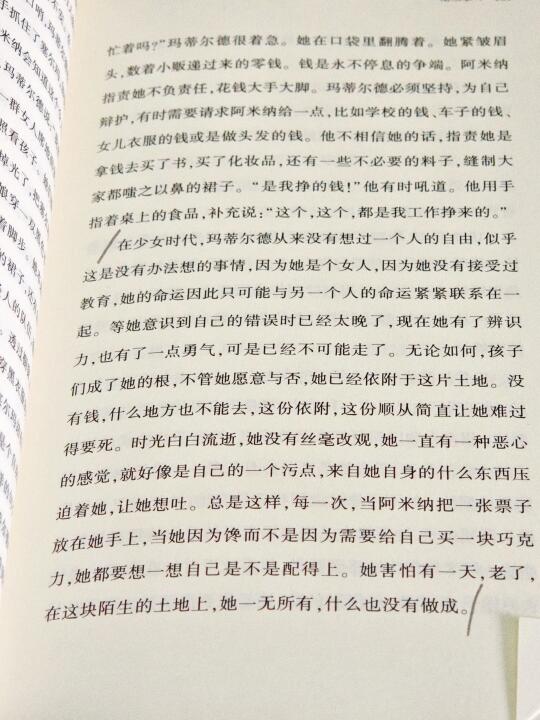 忙着吗?”玛蒂尔德很着急。她在口袋里翻腾着。她紧皱眉
头,数着小贩递过来的零钱。钱是永不停息的争端。阿米纳
指责她不负责任,花钱大手大脚。玛蒂尔德必须坚持,为自己
辩护,有时需要请求阿米纳给一点,比如学校的钱、车子的钱、
女儿衣服的钱或是做头发的钱。他不相信她的话,指责她是
拿钱去买了书,买了化妆品,还有一些不必要的料子,缝制大
家都嗤之以鼻的裙子。“是我挣的钱!”他有时吼道。他用手
指着桌上的食品,补充说:“这个,这个,都是我工作挣来的。”
在少女时代,玛蒂尔德从来没有想过一个人的自由,似乎
这是没有办法想的事情,因为她是个女人,因为她没有接受过
教育,她的命运因此只可能与另一个人的命运紧紧联系在一
起。等她意识到自己的错误时已经太晚了,现在她有了辨识
力,也有了一点勇气,可是已经不可能走了。无论如何,孩子
们成了她的根,不管她愿意与否,她已经依附于这片土地。没
有钱,什么地方也不能去,这份依附,这份顺从简直让她难过
得要死。时光白白流逝,她没有丝毫改观,她一直有一种恶心
的感觉,就好像是自己的一个污点,来自她自身的什么东西压
迫着她,让她想吐。总是这样,每一次,当阿米纳把一张票子
放在她手上,当她因为馋而不是因为需要给自己买一块巧克
力,她都要想一想自己是不是配得上。她害怕有一天,老了,
在这块陌生的土地上,她一无所有,什么也没有做成。